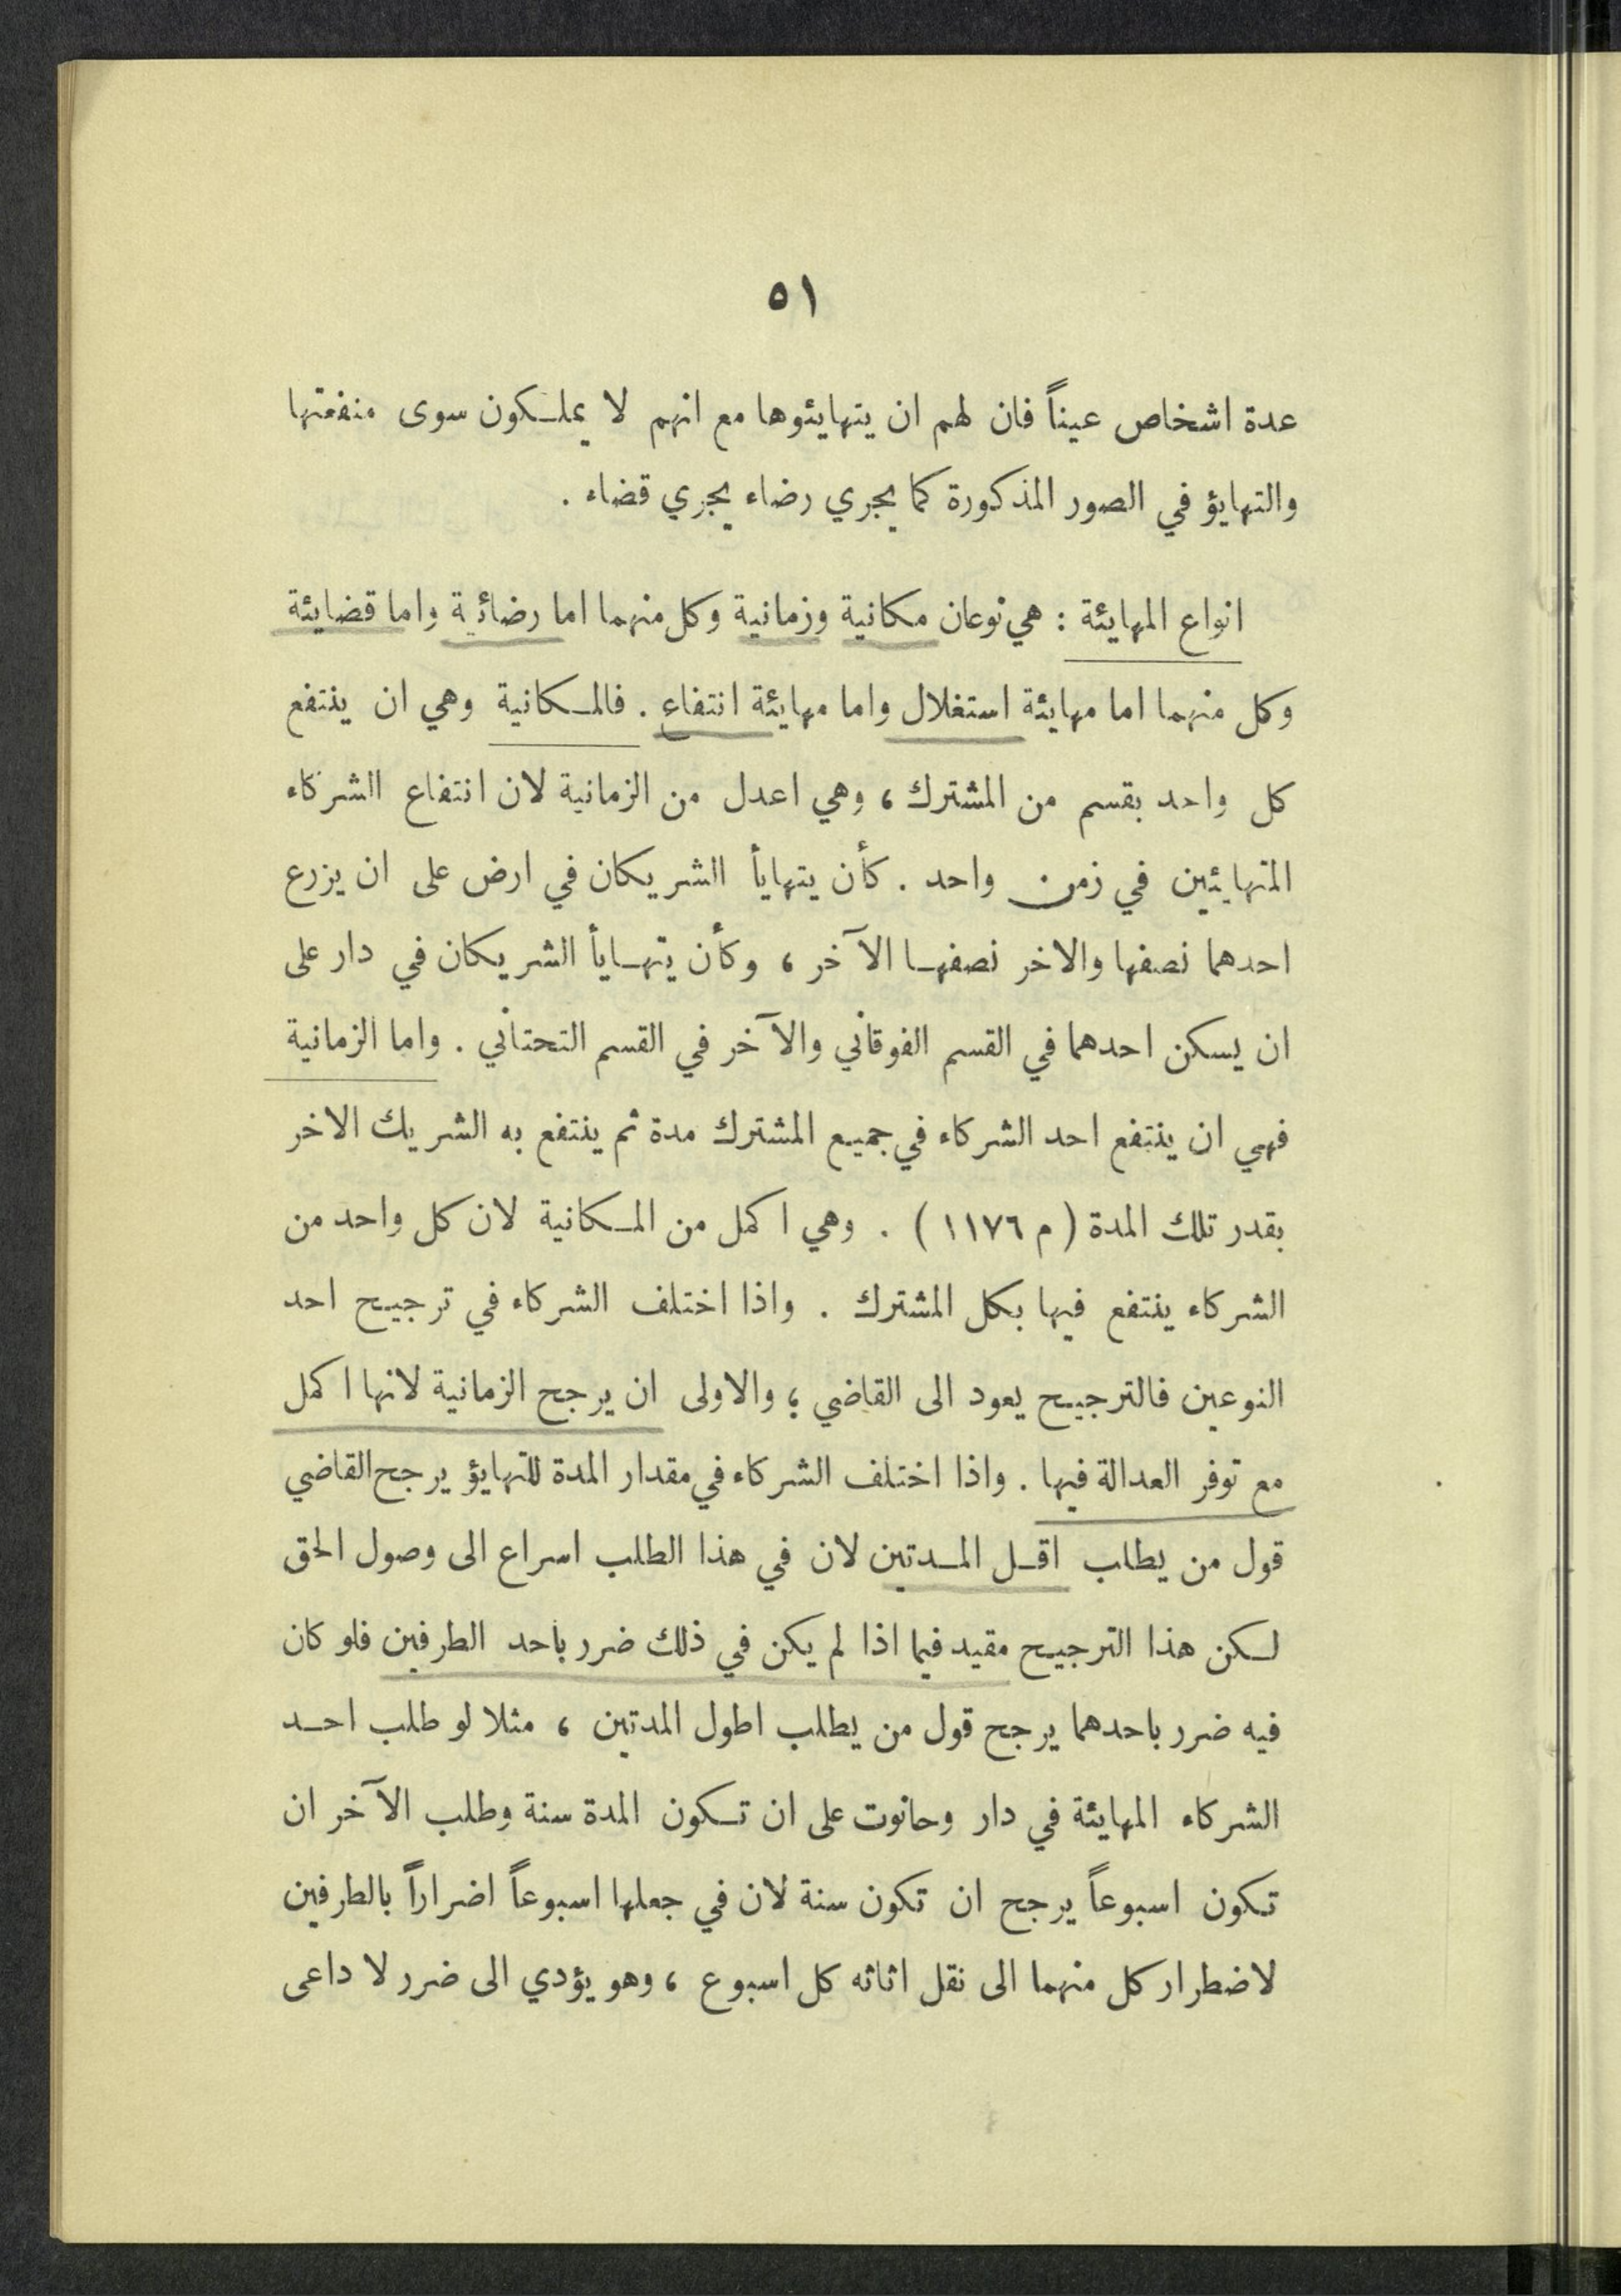 ٥١
عدة اشخاص عيناً فان لهم ان يتهايئوها مع انهم لا يملكون سوى منفعتها
والتهايؤ في الصور المذكورة كما يجري رضاء يجري قضاء .
انواع المهايئة : هي نوعان مكانية وزمانية وكل منهما اما رضائية واما قضايئة
وكل منهما اما مهايئة استغلال واما مهايئة انتفاع . فالمكانية وهي ان ينتفع
كل واحد بقسم من المشترك ، وهي اعدل من الزمانية لان انتفاع الشركاء
المتهايئين في زمن واحد . كأن يتهايأ الشريكان في ارض على ان يزرع
احدهما نصفها والاخر نصفها الآخر ، وكأن يتهايأ الشريكان في دار على
ان يسكن احدهما في القسم الفوقاني والآخر في القسم التحتاني . واما الزمانية
فهي ان ينتفع احد الشركاء في جميع المشترك مدة ثم ينتفع به الشريك الاخر
بقدر تلك المدة ( م ١١٧٦ ) . وهي اكمل من المكانية لان كل واحد من
الشركاء ينتفع فيها بكل المشترك . واذا اختلف الشركاء في ترجيح احد
النوعين فالترجيح يعود الى القاضي ؛ والاولى ان يرجح الزمانية لانها اكمل
مع توفر العدالة فيها . واذا اختلف الشركاء في مقدار المدة للتهايؤ يرجح القاضي
قول من يطلب اقل المدتين لان في هذا الطلب اسراع الى وصول الحق
لكن هذا الترجيح مقيد فيما اذا لم يكن في ذلك ضرر باحد الطرفين فلو كان
فيه ضرر باحدهما يرجح قول من يطلب اطول المدتين ، مثلا لو طلب احد
الشركاء المهايئة في دار وحانوت على ان تكون المدة سنة وطلب الآخر ان
تكون اسبوعاً يرجح ان تكون سنة لان في جعلها اسبوعاً اضراراً بالطرفين
لاضطرار كل منهما الى نقل اثاثه كل اسبوع ، وهو يؤدي الى ضرر لا داعى